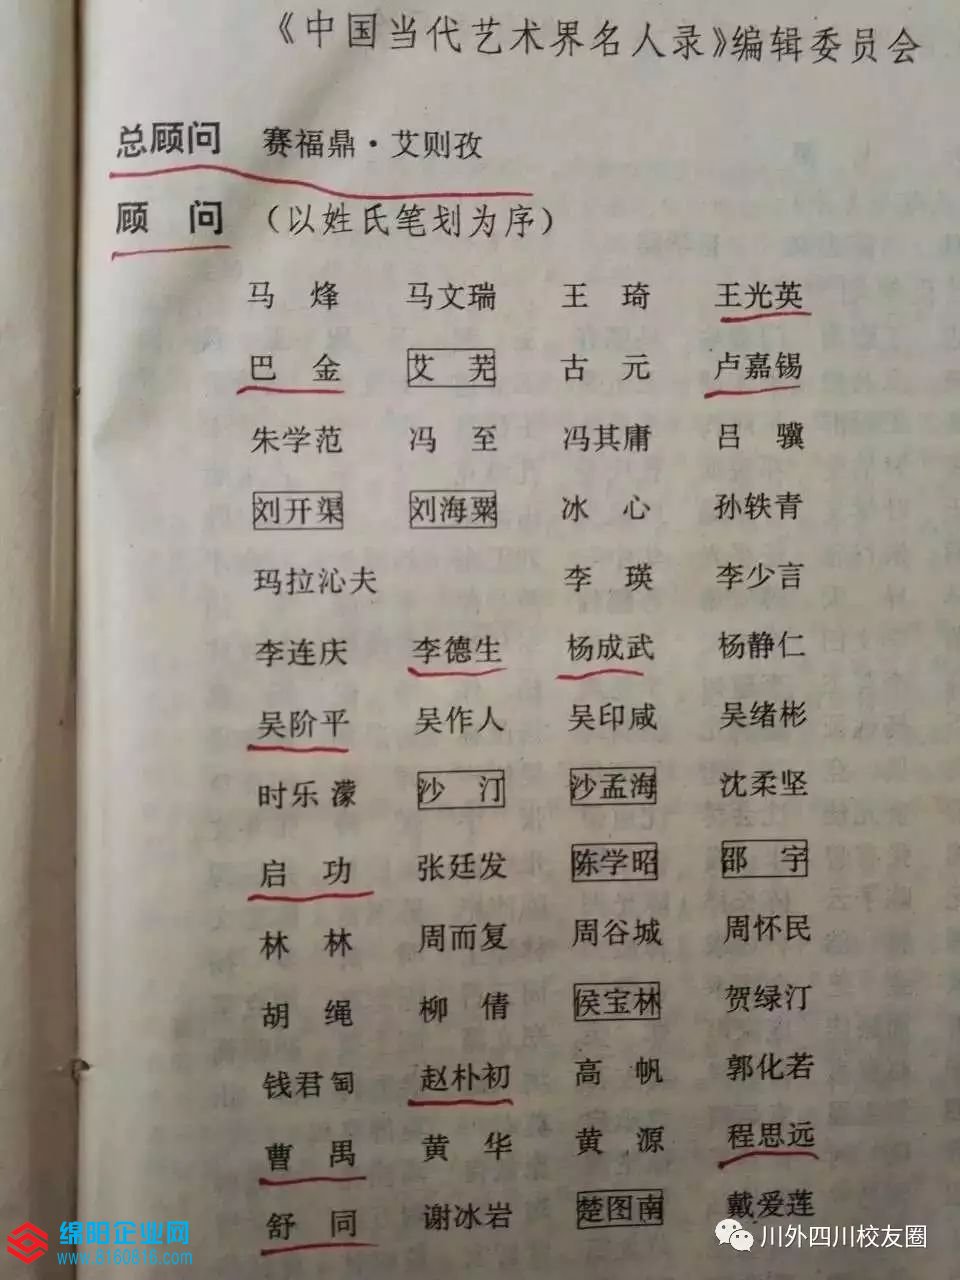 《中国当代艺术界名人录》编辑委员会
总顾问 赛福鼎·艾则孜
顾 问 (以姓氏笔划为序)
马 烽 马文瑞 王 琦 王光英
巴 金 艾 芜 古 元 卢嘉锡
朱学范 冯 至 冯其庸 吕 骥
刘开渠 刘海粟 冰 心 孙轶青
玛拉沁夫 李 瑛 李少言
李连庆 李德生 杨成武 杨静仁
吴阶平 吴作人 吴印咸 吴绪彬
时乐濛 沙 汀 沙孟海 沈柔坚
启 功 张廷发 陈学昭 邵 宇
林 林 周而复 周谷城 周怀民
胡 绳 柳 倩 侯宝林 贺绿汀
钱君匋 赵朴初 高 帆 郭化若
曹 禺 黄 华 黄 源 程思远
舒 同 谢冰岩 楚图南 戴爱莲
绵阳企业网
www.8160816.com
川外四川校友圈